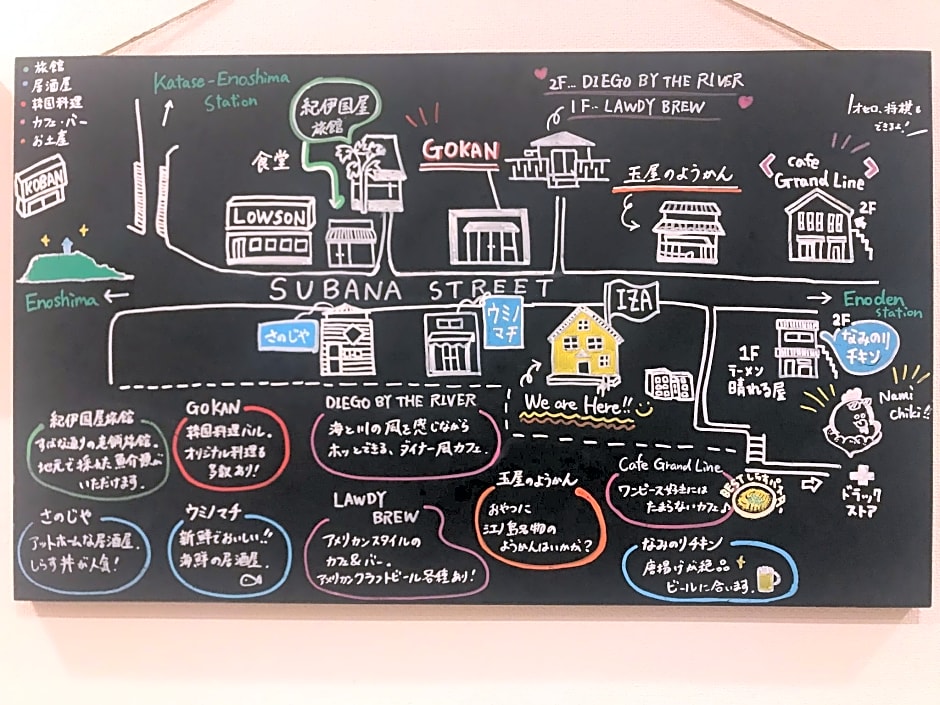 旅館
居酒屋
韓国料理
カフェ・バー
お土産
KOBAN
Katase-Enoshima
Station
紀伊国屋
旅館
食堂
LOWSON
GOKAN
2F... DIEGO BY THE RIVER
1F... LAWDY BREW
玉屋のようかん
オセロ、将棋も
できるよ!
Cafe
Grand Line
2F
Enoshima ←
SUBANA STREET
→ Enoden
station
さのじや
ウミノ
マチ
IZA
We are Here!!
2F
なみのり
チキン
1F
ラーメン
晴れる屋
Nami
Chiki!!
ドラッグ
ストア
紀伊国屋旅館
すばな通りの老舗旅館。
地元で採れた魚介類が
いただけます。
GOKAN
韓国料理バル。
オリジナル料理も
多数あり!
DIEGO BY THE RIVER
海と川の風を感じながら
ホッとできる、ダイナー風カフェ。
さのじや
アットホームな居酒屋。
しらす丼が人気!
ウミノマチ
新鮮でおいしい!!
海鮮の居酒屋。
LAWDY
BREW
アメリカンスタイルの
カフェ&バー。
アメリカンクラフトビール各種あり!
玉屋のようかん
おやつに
江ノ島名物の
ようかんはいかが?
Cafe Grand Line
ワンピース好きには
たまらないカフェ♪
BEST しらすパスタ
なみのりチキン
唐揚げが絶品
ビールに合います。